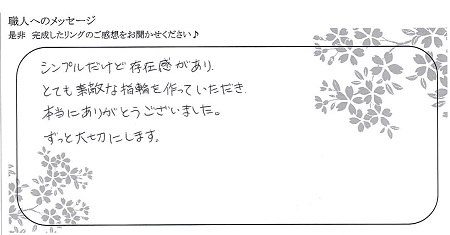 職人へのメッセージ
是非 完成したリングのご感想をお聞かせください♪
シンプルだけど存在感があり、
とても素敵な指輪を作っていただき
本当にありがとうございました。
ずっと大切にします。